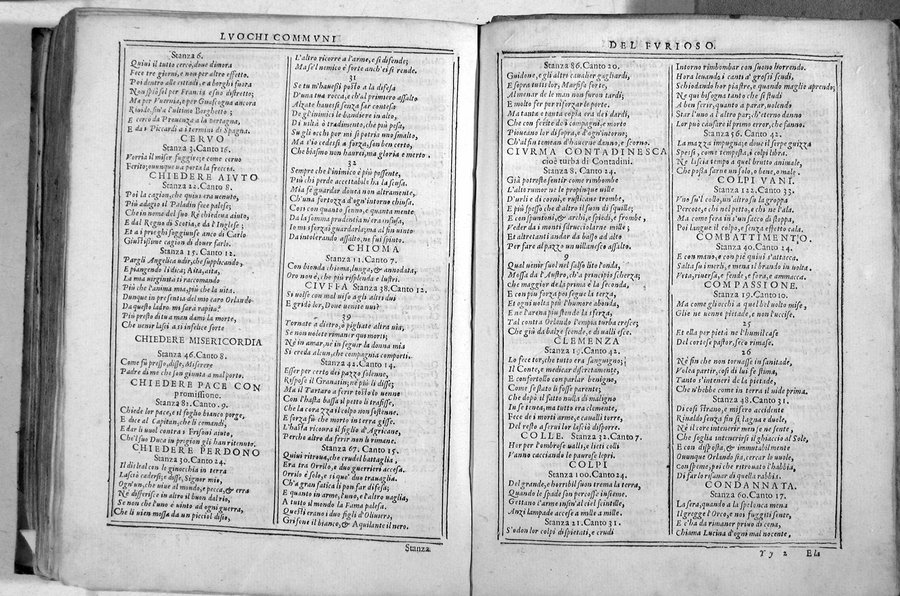 LVOCHI COMMVNI
Stanza 6.
Quini il tutto cercò, doue dimora
Fece tre giorni, e non per altro effetto.
Poi dentro alle cittadi, e a borghi fuora
Non spiò sol per Francia e suo distretto;
Ma per Vuernia, e per Guascogna ancora
Riuide sin'a l'ultimo Borghetto :
E cercò da Prouenza a la bertagna,
E da i Piccardi a i termini di Spagna.
CERVO
Stanza 3. Canto 16.
Vorria il miser fuggire; e come ceruo
Ferito, ounnque ua porta la freccia.
CHIEDERE AIVTO
Stanza 22. Canto 8.
Poi la cagion, che quiui era uenuto,
Più adagio il Paladin fece palese;
Che in nome del suo Rè chiedena aiuto,
E dal Regno di Scotia, e da l'Inglese ;
Et a i prieghi suggiunse anco di Carlo
Giustissime cagion di douer farlo.
Stanza 15. Canto 12.
Pargli Angelica udir, che supplicando,
E piangendo li dica; Aita, aita,
La mia uirginità ti raccomando
Più che l'anima mia, più che la uita.
Dunque in presentia del mio caro Orlando
Da questo ladro mi sarà rapita?
Più presto di tua man dammi la morte,
Che uenir lasci a sì infelice sorte
CHIEDERE MISERICORDIA
Stanza 46. Canto 8.
Come fù presso, disse, Miserere
Padre di me che son giunta a mal porto.
CHIEDERE PACE CON
promissione.
Stanza 81. Canto. 9.
Chiede lor pace, e il foglio bianco porge,
E dice al Capitan, che li comandi,
E dar li uuol contra i Frisoni aiuto,
Che'l suo Duca in prigion gli han ritenuto.
CHIEDERE PERDONO
Stanza 30. Canto 24.
Il disleal con le ginocchia in terra
Lasciò cederſi; e disse, Signor mio,
Ogn'un, che uiue al mondo, e pecca, & erra
Nè differisce in altro il buon dal rio,
Se non che l'uno è uinto ad ogni guerra,
Che li uien mossa da un picciol disio,
L'altro ricorre a l'arme, e si difende;
Ma se'l nemico è forte anch'ei si rende.
31
Se tu m'hauessi posto a la difesa
D'una tua rocca, e ch'al primiero assalto
Alzate hauessi senza far contesa
De gl'inimici le bandiere in alto,
Di uiltà o tradimento, che più pesa,
Su gli occhi por mi si potria uno smalto,
Ma s'io cedessi a forza, son ben certo,
Che biasmo non haurei, ma gloria e morto .
32
Sempre che l'inimico è più possente,
Più chi perde accettabile ha la scusa.
Mia fe guardar douea non altramente,
Ch'una fortezza d'ogn'intorno chiusa.
Così con quanto senno, e quanta mente
Da la somma prudentia m'era infusa,
Io mi sforzai guardarla; ma al fin uinto
Da intolerando assalto, ne fui spinto.
CHIOMA
Stanza 11. Canto 7.
Con bionda chioma, lunga, & annodata,
Oro non è, che più risplenda e lustri.
CIVFFA Stanza 38. Canto 12.
Si uolse con mal uiso a gli altri dui
E gridò lor, Doue uenite uoi?
39
Tornate a dietro, ò pigliate altra uia,
Se non uolete rimaner qui morti;
Nè in amar, nè in seguir la donna mia
Si creda alcun, che compagnia comporti.
Stanza 42. Canto 14.
Esser per certo dei pazzo solenne,
Rispose il Granatin; nè più li disse;
Ma il Tartaro a ferir tosto lo uenne
Con l'hasta bassa il petto li trafisse,
Che la corazza il colpo non sostenne.
E forza fù che morto in terra gisse.
L'hasta ricoura il figlio d'Agricane,
Perche altro da ferir non li rimane.
Stanza 67. Canto 15.
Quini ritroua, che crudel battaglia ,
Era tra Orrilo, e duo guerrieri accesa.
Orrilo è solo, e sì que' duo trauaglia,
Ch'a gran fatica li pon far difesa;
E quanto in arme, l'uno, e l'altro uaglia,
A tutto il mondo la Fama palesa.
Questi erano i duo figli d'Oliuiero,
Grifone il bianco, & Aquilante il nero.
Stanza
DEL FVRIOSO.
Stanza 86. Canto 20.
Guidone, e gli altri cauallier gagliardi,
E sopra tutti lor, Marfisa forte,
Al menar de le man non furon tardi;
E molto fer per isforzar le porte.
Ma tanta e tanta copia era dei dardi,
Che con ferite dei compagni, e morte
Pioueano lor di sopra, e d'ogn'intorno;
Ch'al fin temean d'hauerne danno, e scorno.
CIVRMA CONTADINESCA
cioè turba di Contadini.
Stanza 8. Canto 24.
Già potreste sentir come rimbombe
L'alto rumor ne le propinque uille
D'urli e di corni, e rusticane trombe,
E più spesso che d'altro il suon di squille;
E con spuntoni, & archi, e spiedi, e frombe,
Veder da i monti sdrucciolarne mille ;
Et altretanti andar da basso ad alto
Per fare al pazzo un uillanesco assalto.
9
Qual uenir suol nel salso lito l'onda,
Mossa da l'Austro, ch'a principio scherza;
Che maggior de la prima è la seconda,
E con piu forza poi segue la terza,
Et ogni uolta più l'humore abonda,
E ne l'arena piu stende la sferza,
Tal contra Orlando l'empia turba cresce;
Che giù da balze scende, e di ualli esce.
CLEMENZA
Stanza 19. Canto 42.
Lo fece tor, che tutto era sanguigno;
Il Conte, e medicar discretamente;
E confortollo con parlar benigno,
Come se stato li fosse parente;
Che dopo il fatto nulla di maligno
In se tenea, ma tutto era clemente,
Fece dei morti arme, e caualli torre,
Del resto a serui lor lasciò disporre.
COLLE. Stanza 32. Canto 7.
Hor per l'ombrose ualli, e lieti colli
Vanno cacciando le paurose lepri.
COLPI
Stanza 100. Canto 24.
Del grande, e horribil suon trema la terra,
Quando le spade son percosse insieme.
Gittano l'arme insin'al ciel scintille,
Anzi lampade accese a mille a mille.
Stanza 21. Canto 31.
S'odon lor colpi dispietati, e crudi
Intorno rimbombar con suono horrendo.
Hora leuando i canti a' grossi scudi,
Schiodando hor piastre, e quando maglie aprendo;
Ne qui bisogna tanto che si studi
A ben ferir, quanto a parar, uolendo
Star l'uno a l'altro par; ch'eterno danno
Lor può causare il primo error, che fanno.
Stanza 56. Canto 42.
La mazza impugna; e doue il serpe guizza
Spessi , come tempesta, i colpi libra.
Ne lascia tempo a quel brutto animale,
Che possa farne un solo, o bene, o male.
COLPI VANI.
Stanza 122. Canto 33.
Vno su'l collo, un'altro su la groppa
Percote, e chi nel petto, e chi ne l'ala.
Ma come fera in s'un sacco di stoppa,
Poi langue il colpo, e senza effetto cala.
COMBATTIMENTO.
Stanza 40. Canto 14.
E con mano, e con piè quiui s'attacca,
Salta su i merli, e mena il brando in uolta.
Vrta, riuersa, e fende, e fora, e ammacca.
COMPASSIONE.
Stanza 19. Canto 10.
Ma come gli occhi a quel bel uolto mise,
Glie ne uenne pietade, e non l'uccise.
25
Et ella per pietà ne l'humil case
Del cortese pastor, seco rimase.
26
Nè fin che non tornasse in sanitade,
Volea partir, così di lui se stima,
Tanto s'intenerì de la pietade,
Che n'hebbe come in terra il uide prima.
Stanza 48. Canto 31.
Di così strano, e misero accidente
Rinaldo senza fin si lagna e duole,
Nè il core intenerir men se ne sente,
Che soglia intenerirsi il ghiaccio al Sole,
E con disposta, & immutabilmente
Ounnque Orlando sia, cercar lo uuole,
Con speme, poi che ritrouato l'habbia,
Di farlo risanar di quella rabbia.
CONDANNATA.
Stanza 60. Canto 17.
La sera, quando a la spelonca mena
Il gregge l'Orco, e noi fuggiti sente,
E c'ha da rimaner priuo di cena,
Chiama Lucina d'ogni mal nocente,
Yy 2
Ela